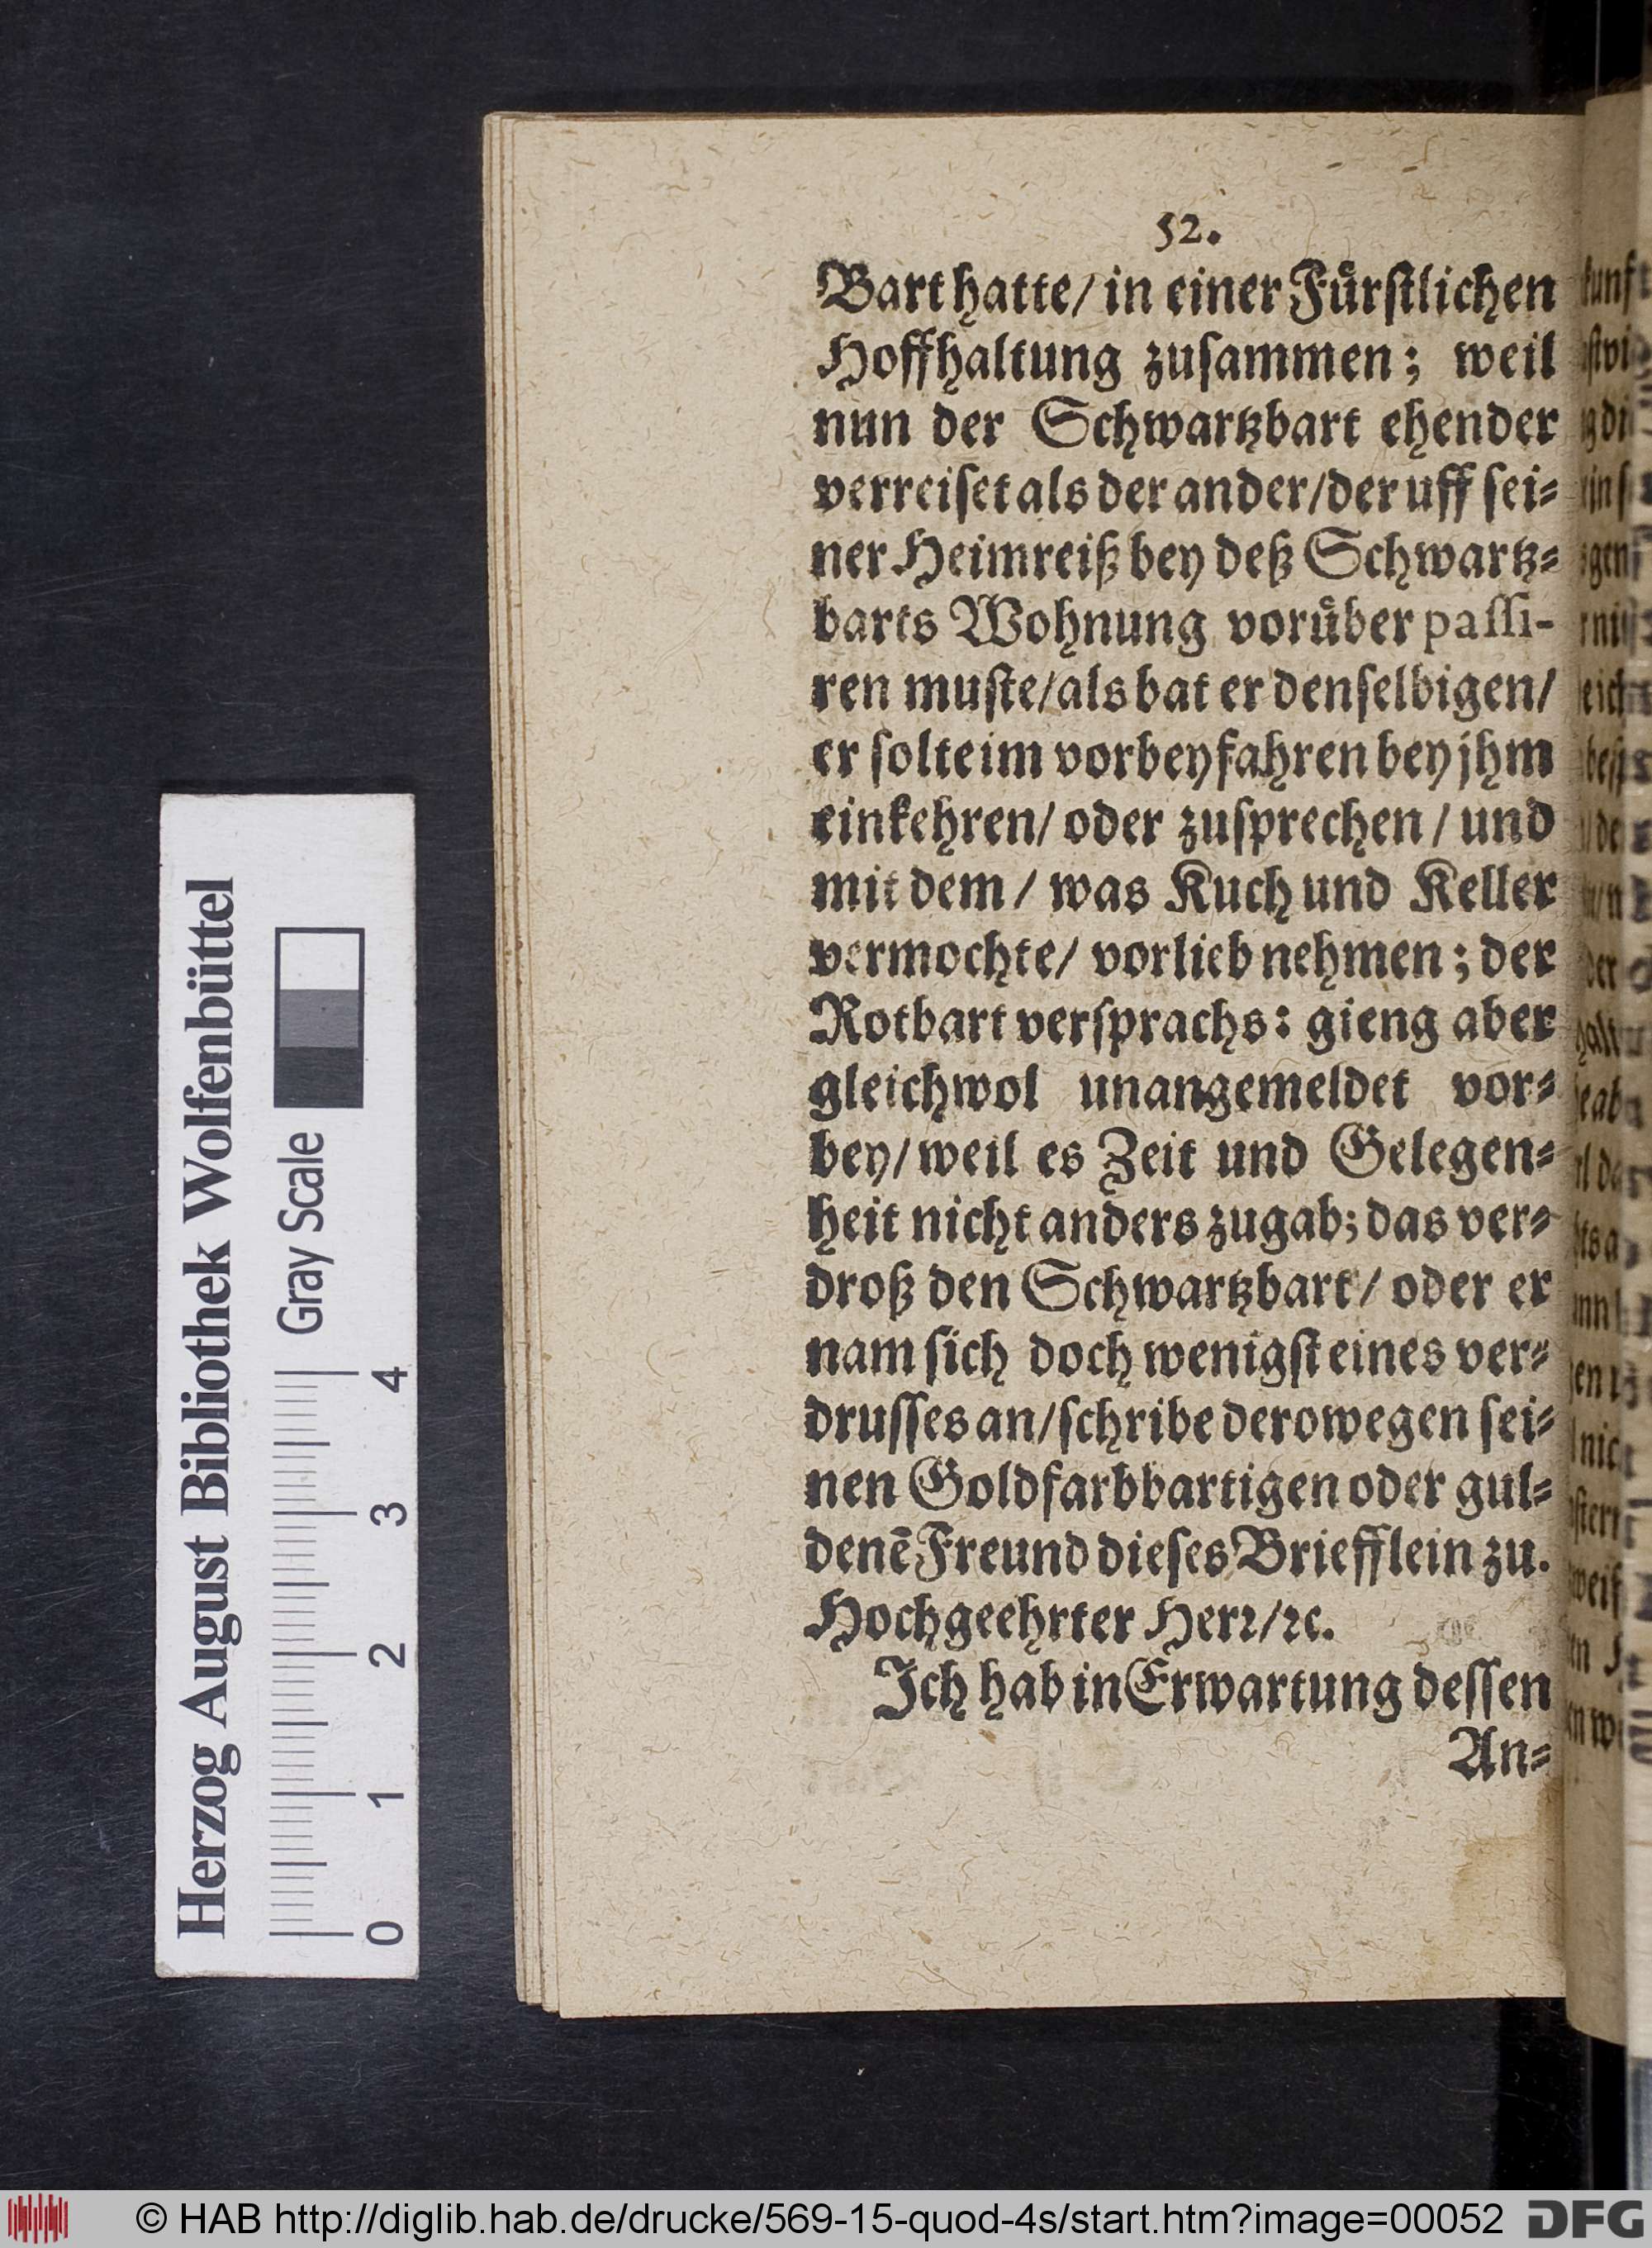 52.
Bart hatte/ in einer Fuͤrſtlichen
Hoffhaltung zuſammen; weil
nun der Schwartzbart ehender
verreiſet als der ander/der uff ſei⸗
ner Heimreiß bey deß Schwartz⸗
barts Wohnung voruͤber paſſi-
ren muſte/als bat er denſelbigen/
er ſolte im vorbeyfahren bey jhm
einkehren/ oder zuſprechen / und
mit dem / was Kuch und Keller
vermochte/ vorlieb nehmen; der
Rotbart verſprachs: gieng aber
gleichwol unangemeldet vor⸗
bey/ weil es Zeit und Gelegen⸗
heit nicht anders zugab; das ver⸗
droß den Schwartzbart/ oder er
nam ſich doch wenigſt eines ver⸗
druſſes an/ſchribe derowegen ſei⸗
nen Goldfarbbartigen oder gul⸗
denē Freund dieſes Briefflein zu.
Hochgeehrter Herꝛ/ꝛc.
Ich hab in Erwartung deſſen
An⸗
Herzog August Bibliothek Wolfenbüttel
Gray Scale
0 1 2 3 4
© HAB http://diglib.hab.de/drucke/569-15-quod-4s/start.htm?image=00052
DFG